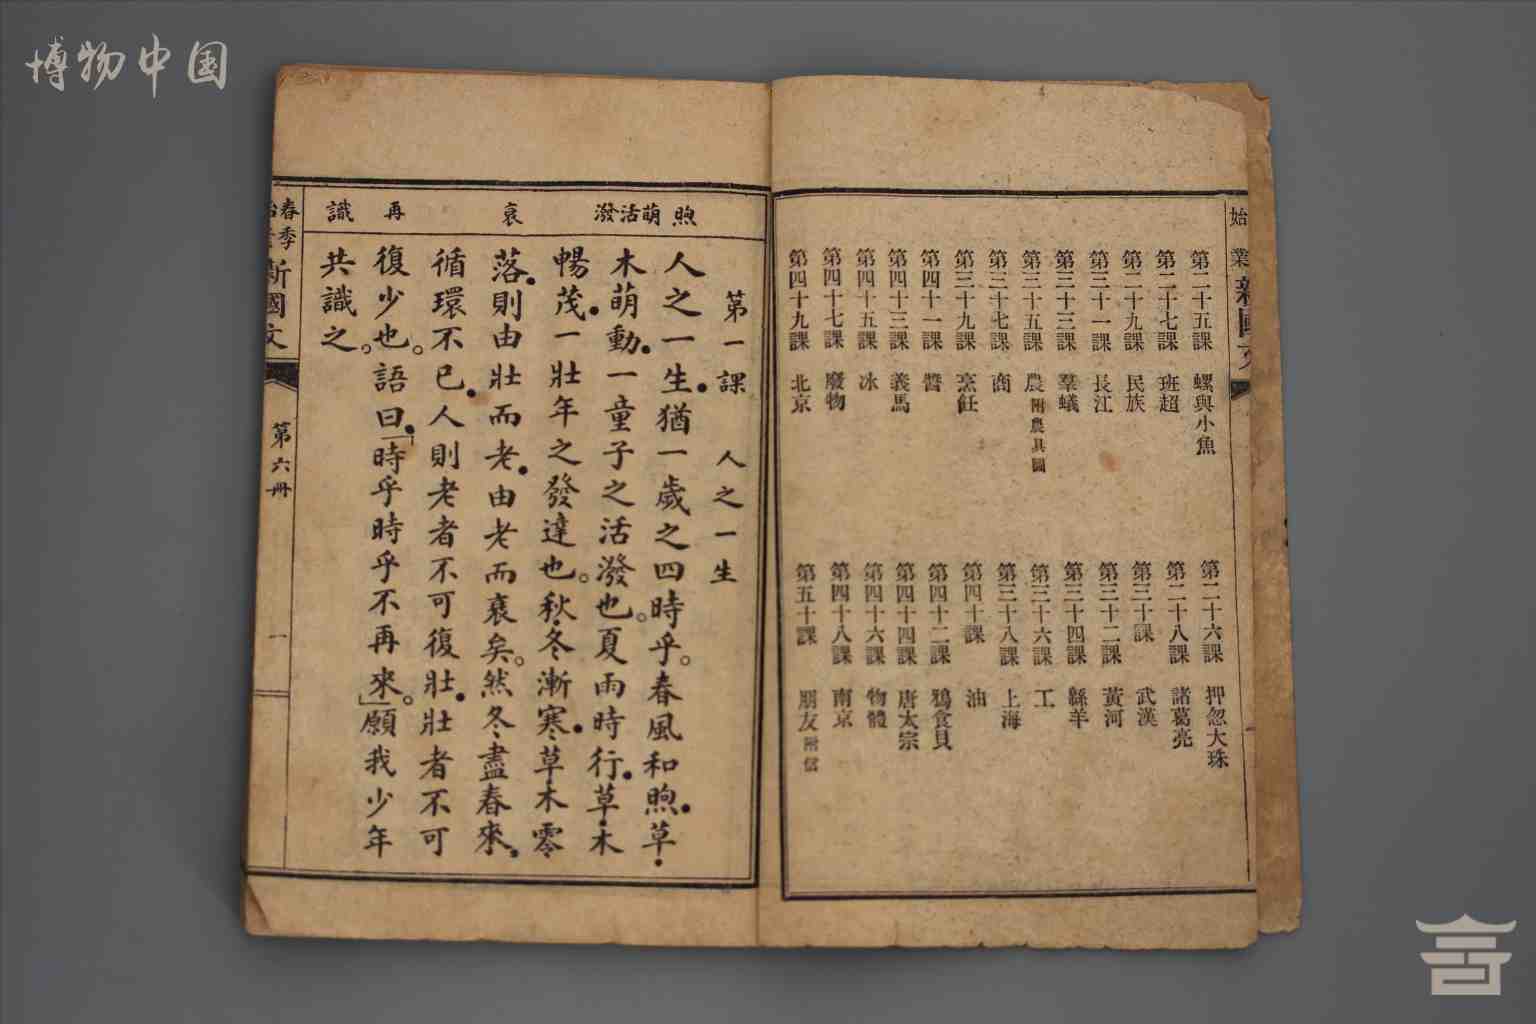 博物中国
始業新國文
第二十五課 螺與小魚
第二十七課 班超
第二十九課 民族
第三十一課 長江
第三十三課 羣蟻
第三十五課 農附農具圖
第三十七課 商
第三十九課 烹飪
第四十一課 醬
第四十三課 義馬
第四十五課 冰
第四十七課 廢物
第四十九課 北京
第二十六課 押忽大珠
第二十八課 諸葛亮
第三十課 武漢
第三十二課 黃河
第三十四課 緜羊
第三十六課 工
第三十八課 上海
第四十課 油
第四十二課 鴉食貝
第四十四課 唐太宗
第四十六課 物體
第四十八課 南京
第五十課 朋友附信
煦 萌 活潑 衰 再 識
第一課 人之一生
人之一生。猶一歲之四時乎。春風和煦。草
木萌動。一童子之活潑也。夏雨時行。草木
暢茂。一壯年之發達也。秋冬漸寒。草木零
落。則由壯而老。由老而衰矣。然冬盡春來。
循環不已。人則老者不可復壯。壯者不可
復少也。語曰。「時乎時乎不再來。」願我少年
共識之。
春季始業
新國文
第六冊
一